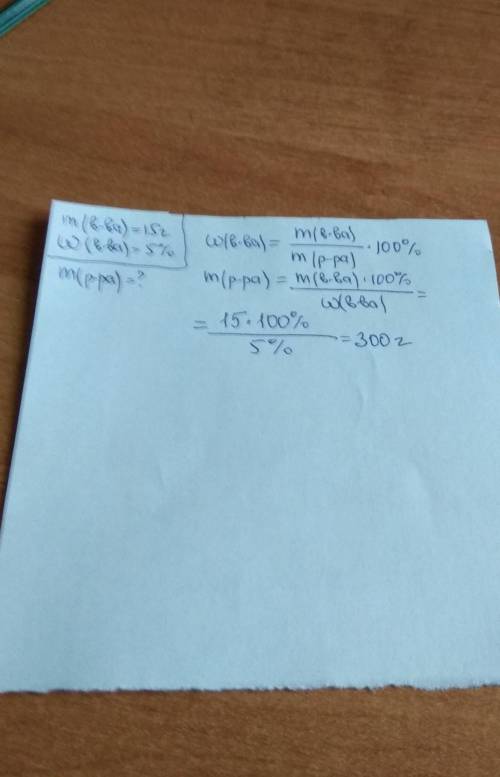 m(в-ва)=15г
ω(в-ва)=5%
m(р-ра)=?
ω(в-ва)= m(в-ва)/m(р-ра) · 100%
m(р-ра) = m(в-ва)·100%/ω(в-ва) =
= 15·100%/5% = 300г